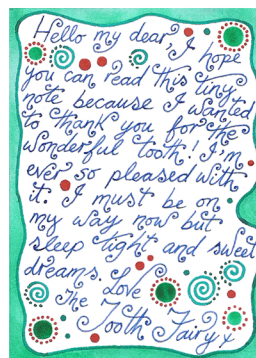 Hello my dear, I hope
you can read this tiny
note because I wanted
to thank you for the
wonderful tooth! I'm
ever so pleased with
it. I must be on
my way now but
sleep tight and sweet
dreams. Love
The
Tooth Fairy x